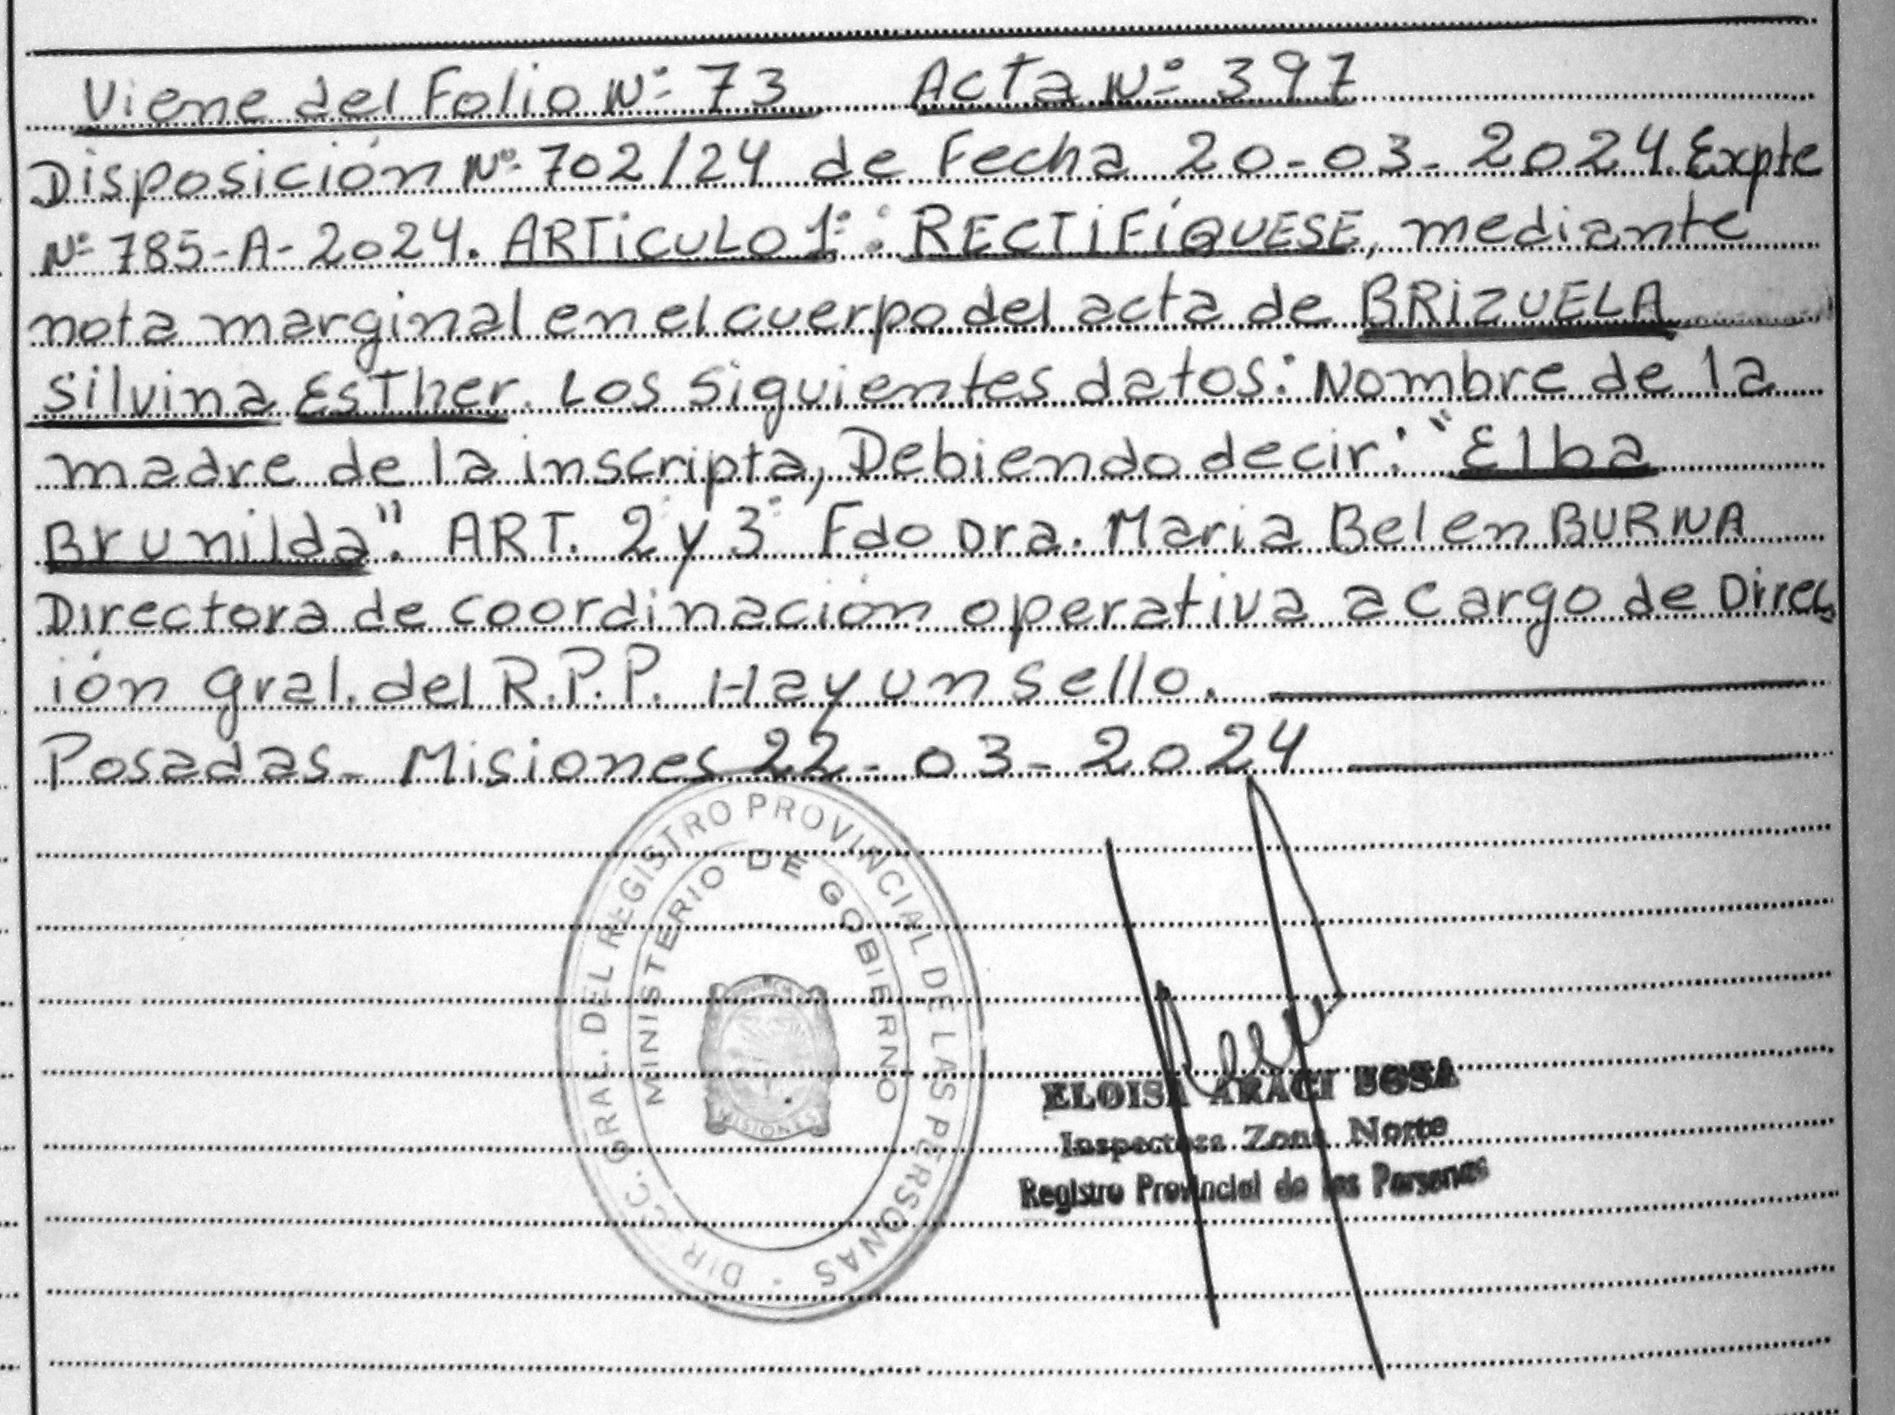 Viene del Folio Nº 73 Acta Nº 397
Disposición Nº 702/24 de Fecha 20-03-2024. Expte
Nº 785-A-2024. ARTiCULO 1º: RECTiFíQUESE, mediante
nota marginal en el cuerpo del acta de BRiZUELA
Silvina EsTher. Los siguientes datos: Nombre de la
madre de la inscripta, Debiendo decir: "Elba
Brunilda". ART. 2 y 3º Fdo Dra. Maria Belen BURNA
Directora de coordinación operativa a cargo de Direcc
ión gral. del R.P.P. Hay un sello.
Posadas - Misiones 22-03-2024
DIR. CC. GRAL. DEL REGISTRO PROVINCIAL DE LAS PERSONAS
MINISTERIO DE GOBIERNO
MISIONES
ELOISA ARACI SOSA
Inspectora Zona Norte
Registro Provincial de las Personas